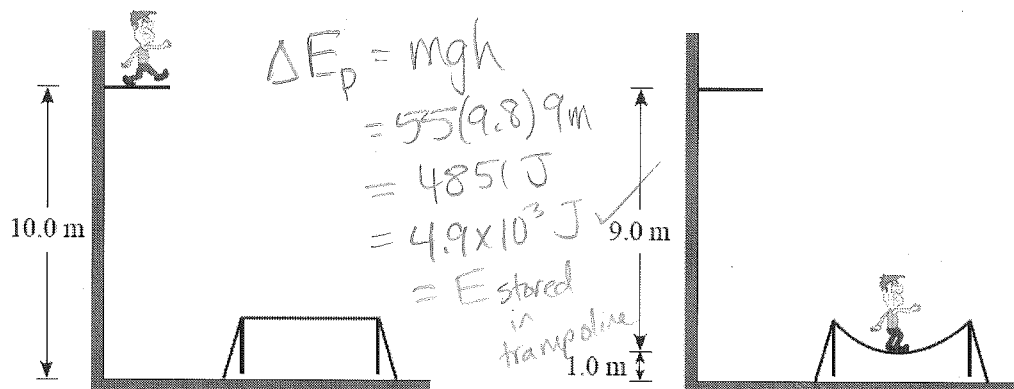 ΔEp = mgh
= 55(9.8)9m
= 4851 J
= 4.9x10³ J ✓
= E stored
in
trampoline
10.0 m
9.0 m
1.0 m